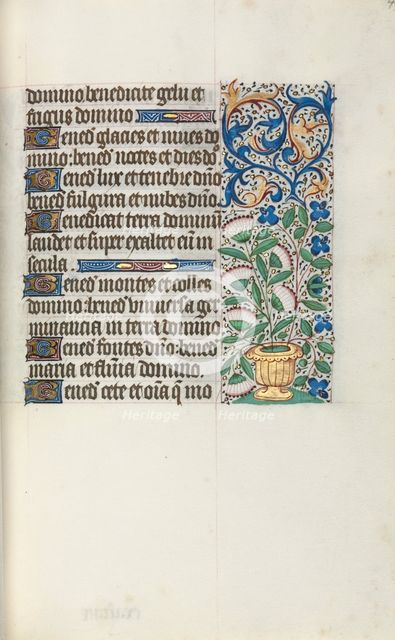 domino benedicite gelu et
frigus domino
Bened glacies et nives do
mino: bened noctes et dies do
Bened lux et tenebre dno
bened fulgura et nubes dno.
Benedicat terra dominū
laudet et super exaltet eū in
secula
Bened montes et colles
domino: bened universa ger
minancia in terra domino
Bened fontes dno bened
maria et flūia domino.
Bened cete et oīa q mo
Heritage
Heritage
Heritage
Heritage